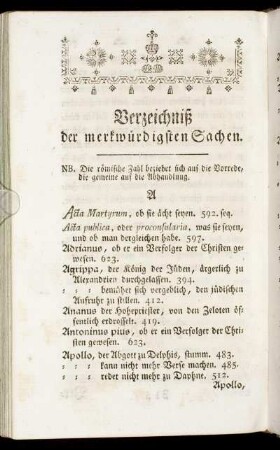 Verzeichniß
der merkwürdigsten Sachen.
NB. Die römische Zahl beziehet sich auf die Vorrede,
die gemeine auf die Abhandlung.
A
Acta Martyrum, ob sie ächt seyen. 592. seq.
Acta publica, oder proconsularia, was sie seyen,
und ob man dergleichen habe. 597.
Adrianus, ob er ein Verfolger der Christen ge-
wesen. 623.
Agrippa, der König der Jüden, ärgerlich zu
Alexandrien durchgelassen. 394.
= = = bemüher sich vergeblich, den jüdischen
Aufruhr zu stillen. 412.
Ananus der Hohepriester, von den Zeloten öf-
fentlich erdrosselt. 419.
Antoninus pius, ob er ein Verfolger der Chri-
sten gewesen. 623.
Apollo, der Abgott zu Delphis, stumm. 483.
= = = kann nicht mehr Verse machen. 485.
= = = redet nicht mehr zu Daphne. 512.
Apollo,